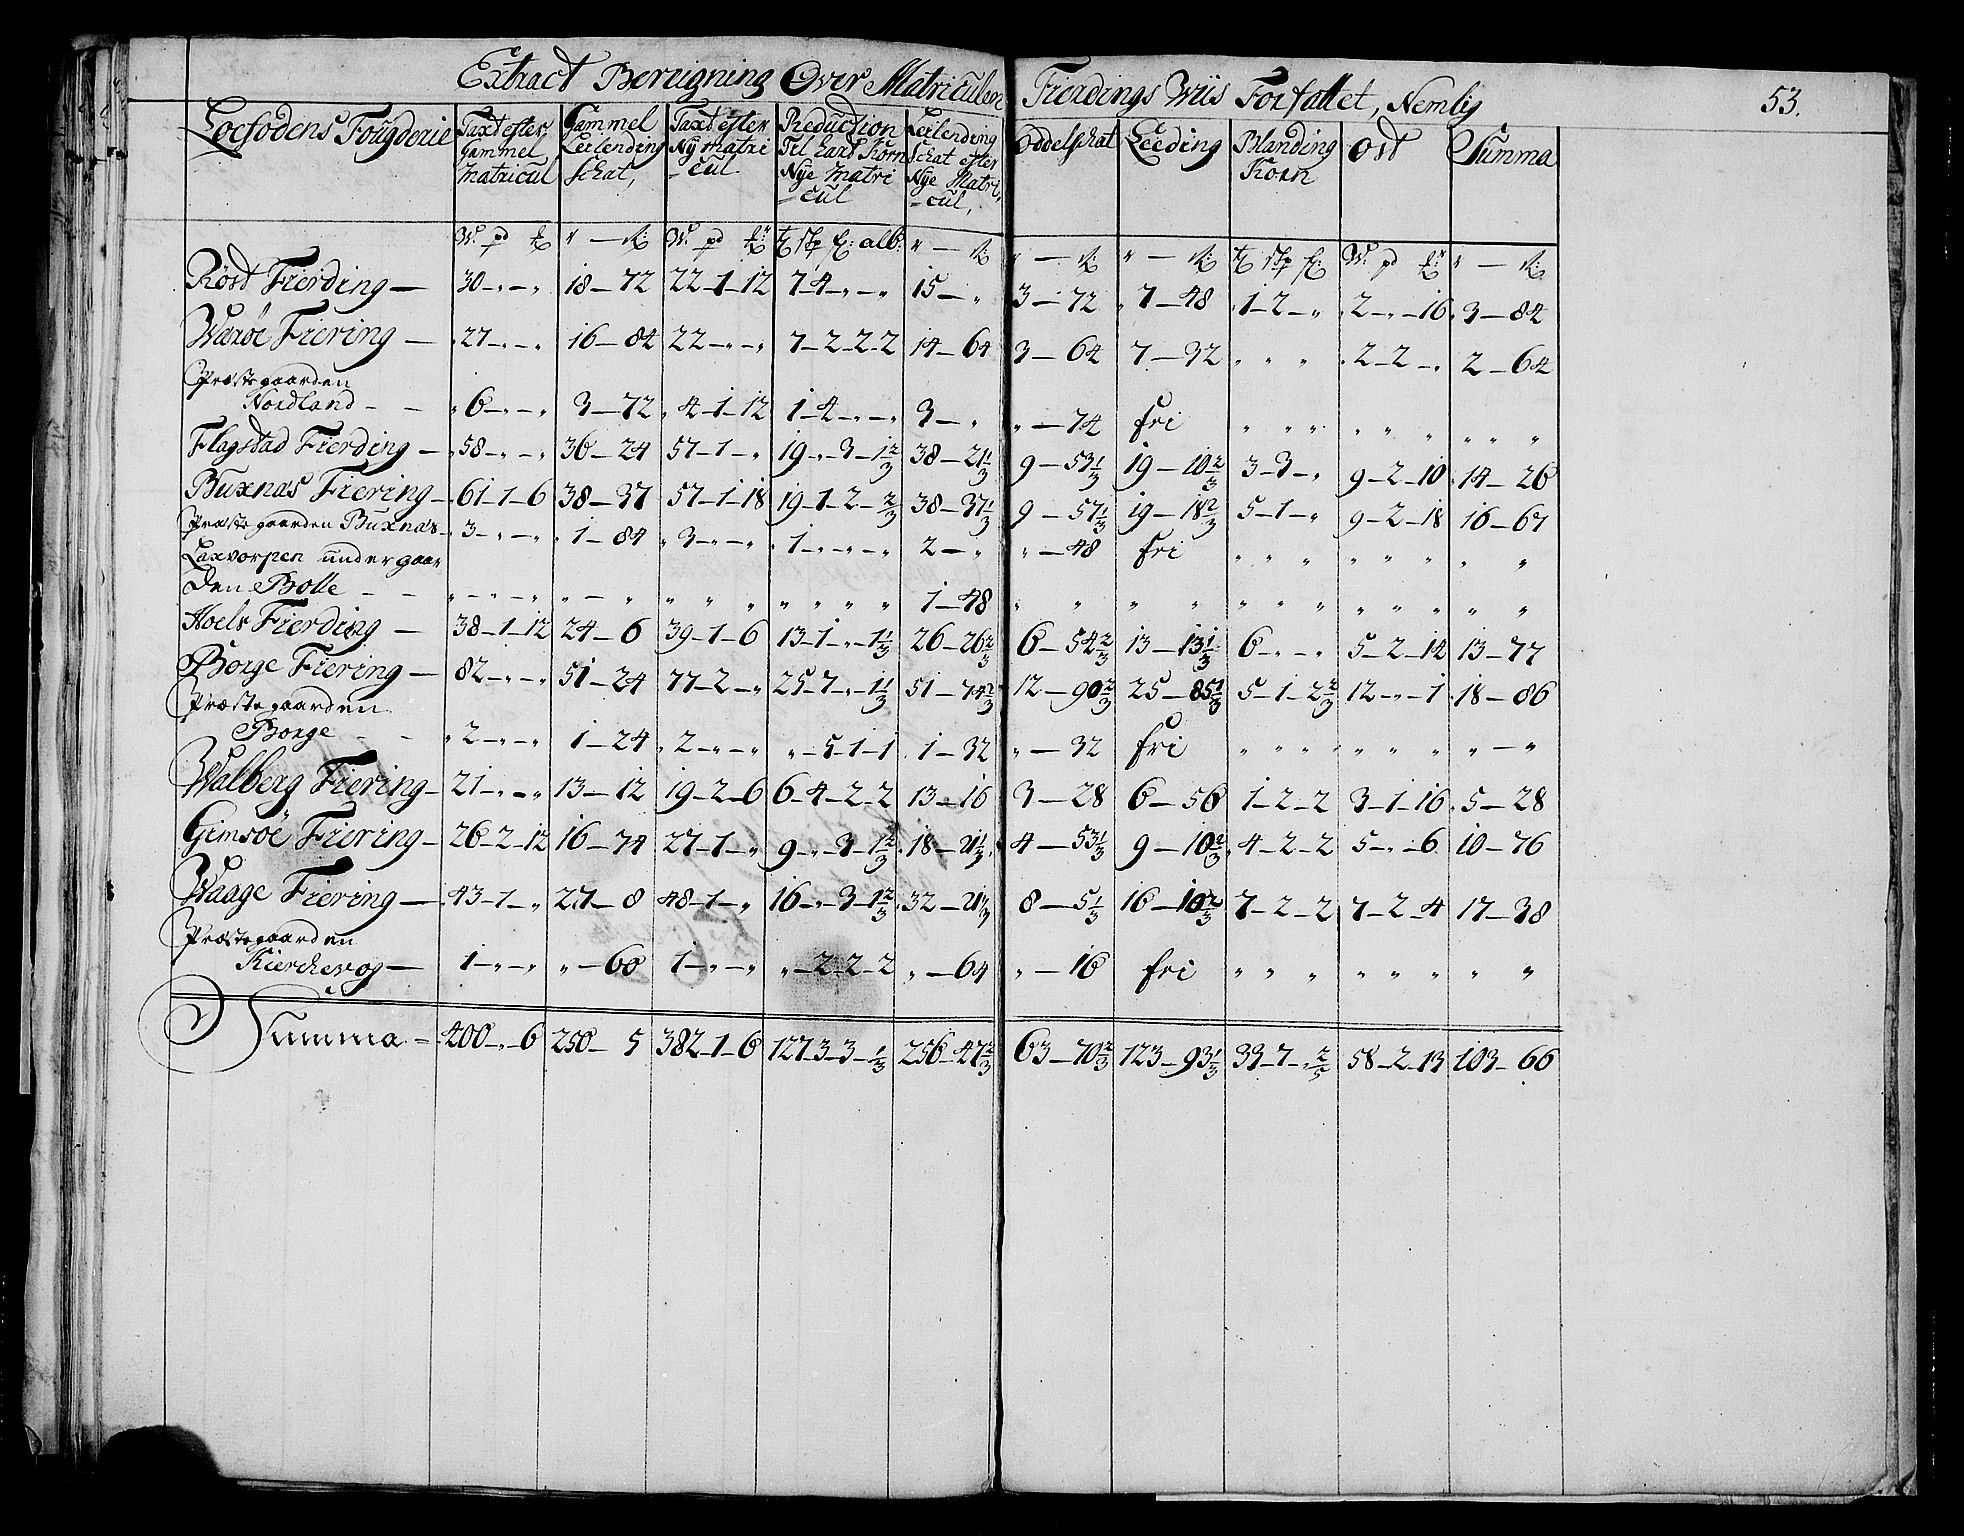 Extract Bereigning Over Matriculen Fierdings Wiis Forfattet, Nemlig
53.
Loefodens Fougderie | Taxt efter Gammel Matricul | Gammel Leilending Schat, | Taxt efter Ny matri-cul | Reduction Til hard Korn Nye Matri-cul | Leilending Schat efter Nye Matri-cul, | Oddelschat | Leeding | Blanding Korn | Ost | Summa
Röst Fierding — | 30 — „ — „ | 18 — 72 | 22 — 1 — 12 | 7 — 4 — „ — „ | 15 — „ | 3 — 72 | 7 — 48 | 1 — 2 — „ | 2 — „ — 16 | 3 — 84
Waröe Fiering — | 27 — „ — „ | 16 — 84 | 22 — „ — „ | 7 — 2 — 2 — 2 | 14 — 64 | 3 — 64 | 7 — 32 | „ „ „ | 2 — 2 — „ | 2 — 64
Præstegaarden
Nordland — — | 6 — „ — „ | 3 — 72 | 4 — 1 — 12 | 1 — 4 — „ — „ | 3 — „ | „ — 74 | fri | „ „ „ | „ „ „ | „ „ „
Flagstad Fierding — | 58 — „ — „ | 36 — 24 | 57 — 1 — „ | 19 — „ — 3 — 1 2/3 | 38 — 21 1/3 | 9 — 53 1/3 | 19 — 10 2/3 | 3 — 3 — „ | 9 — 2 — 10 | 14 — 26
Buxnæs Fiering — | 61 — 1 — 6 | 38 — 37 | 57 — 1 — 18 | 19 — 1 — 2 — 2/3 | 38 — 37 1/3 | 9 — 57 1/3 | 19 — 18 2/3 | 5 — 1 — „ | 9 — 2 — 18 | 16 — 67
Præstegaarden Buxnæs — | 3 — „ — „ | 1 — 84 | 3 — „ — „ | 1 — „ — „ — „ | 2 — „ | „ — 48 | fri | „ „ „ | „ „ „ | „ „
Laxvorpen under gaar
den Bolle — — | „ — „ — „ | „ — „ | „ „ „ | „ „ „ „ | 1 — 48 | „ „ | „ „ | „ „ „ | „ „ „ | „ „
Hoels Fierding — | 38 — 1 — 12 | 24 — 6 | 39 — 1 — 6 | 13 — 1 — „ — 1 1/3 | 26 — 26 2/3 | 6 — 54 2/3 | 13 — 13 1/3 | 6 — „ — „ | 5 — 2 — 14 | 13 — 77
Borge Fiering — | 82 — „ — „ | 51 — 24 | 77 — 2 — „ | 25 — 7 — „ — 1 1/3 | 51 — 74 2/3 | 12 — 90 2/3 | 25 — 85 1/3 | 5 — 1 — 2 2/3 | 12 — „ — 1 | 18 — 86
Præstegaarden
Borge — — | 2 — „ — „ | 1 — 24 | 2 — „ — „ | „ — 5 — 1 — 1 | 1 — 32 | „ — 32 | fri | „ „ „ | „ „ „ | „ — „
Walberg Fiering — | 21 — „ — „ | 13 — 12 | 19 — 2 — 6 | 6 — 4 — 2 — 2 | 13 — 16 | 3 — 28 | 6 — 56 | 1 — 2 — 2 | 3 — 1 — 16 | 5 — 28
Gimsöe Fiering — | 26 — 2 — 12 | 16 — 74 | 27 — 1 — „ | 9 — „ — 3 — 1 2/3 | 18 — 21 1/3 | 4 — 53 1/3 | 9 — 10 2/3 | 4 — 2 — 2 | 5 — „ — 6 | 10 — 76
Waage Fiering — | 43 — 1 — „ | 27 — 8 | 48 — 1 — „ | 16 — „ — 3 — 1 2/3 | 32 — 21 1/3 | 8 — 5 1/3 | 16 — 10 2/3 | 7 — 2 — 2 | 7 — 2 — 4 | 17 — 38
Præstegaarden
Kierchevog — | 1 — „ — „ | „ — 60 | 1 — „ — „ | „ — 2 — 2 — 2 | „ — 64 | „ — 16 | fri | „ „ „ | „ „ „ | „ „
Summa — | 400 — „ — 6 | 250 — 5 | 382 — 1 — 6 | 127 — 3 — 3 — 1/3 | 256 — 47 2/3 | 63 — 70 2/3 | 123 — 93 1/3 | 39 — 7 — „ 2/5 | 58 — 2 — 13 | 103 — 66